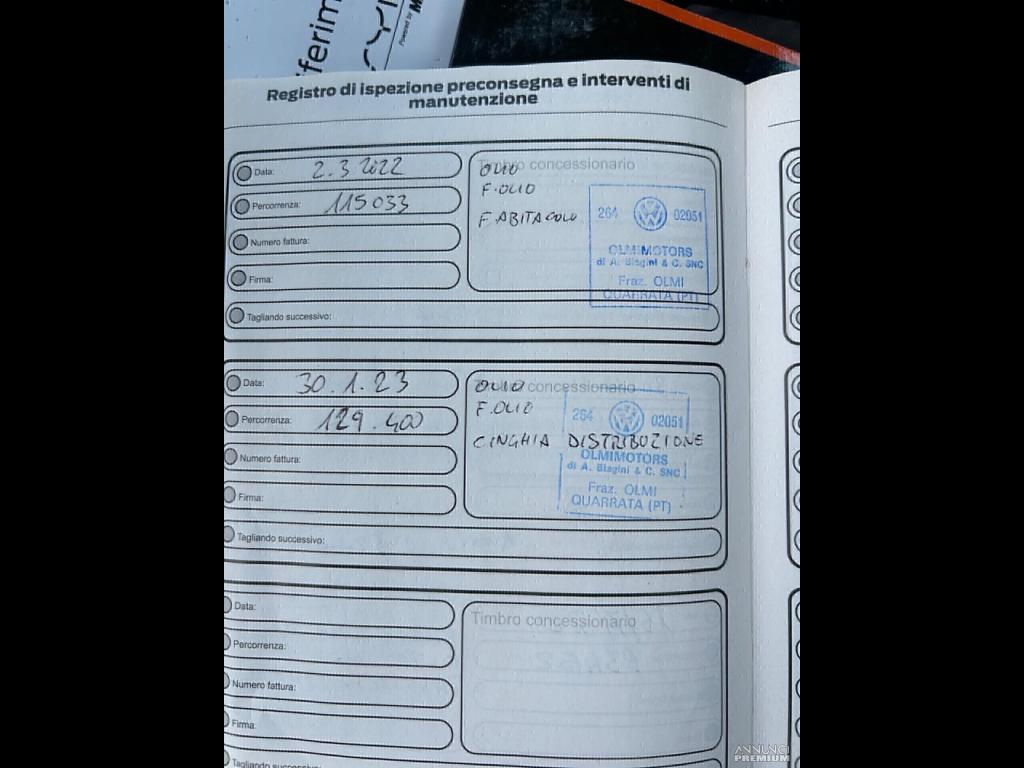 iferim
Powered by M
Registro di ispezione preconsegna e interventi di
manutenzione
Data: 2.3.2022
Percorrenza: 115033
Numero fattura:
Firma:
Tagliando successivo:
Timbro concessionario
OLIO
F.OLIO
F.ABITACOLO
264 02051
OLMIMOTORS
di A. Biagini & C. SNC
Fraz. OLMI
QUARRATA (PT)
Data: 30.1.23
Percorrenza: 129.400
Numero fattura:
Firma:
Tagliando successivo:
Timbro concessionario
OLIO
F.OLIO
CINGHIA DISTRIBUZIONE
264 02051
OLMIMOTORS
di A. Biagini & C. SNC
Fraz. OLMI
QUARRATA (PT)
Data:
Percorrenza:
Numero fattura:
Firma:
Tagliando successivo:
Timbro concessionario
ANNUNCI
PREMIUM